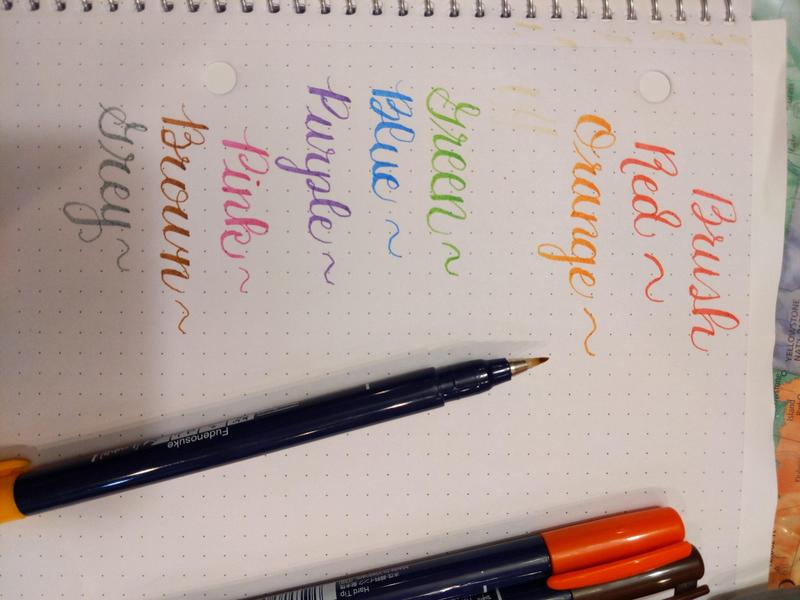 Brush
Red ~
Orange ~
Green ~
Blue ~
Purple ~
Pink ~
Brown ~
Grey ~
Fudenosuke
Hard Tip
YELLOWSTONE
Island